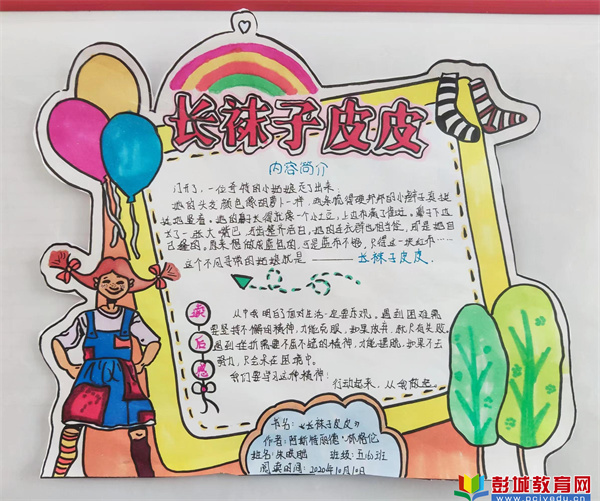 长袜子皮皮
内容简介
门开了,一位奇怪的小姑娘走了出来:
她的头发颜色像胡萝卜一样,两条梳得硬邦邦的小辫子直挺
挺地竖着。她的鼻子长得就像一个小土豆,上边布满了雀斑。鼻子下边
长了一张大嘴巴,牙齿整齐洁白。她的连衣裙也相当怪,那是她自
己缝的。原来想做成蓝色的,可是蓝布不够,只得这一块红布……
这个不同寻常的姑娘就是————长袜子皮皮。
读后感
从中我明白了面对生活一定要乐观。遇到困难需
要坚持不懈的精神,才能克服,如果放弃,就只有失败。
遇到挫折需要不屈不挠的精神,才能摆脱,如果不去
努力,只会呆在困境中。
我们要学习这种精神!
行动起来,从我做起。
书名:《长袜子皮皮》
作者:阿斯特丽德·林格伦
姓名:朱
班级:五(6)班
阅读时间:2020年10月10日
彭城教育网
www.pcjyedu.cn